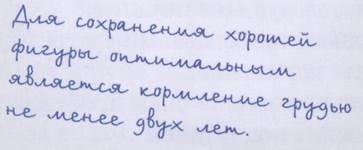 Для сохранения хорошей
фигуры оптимальным
является кормление грудью
не менее двух лет.